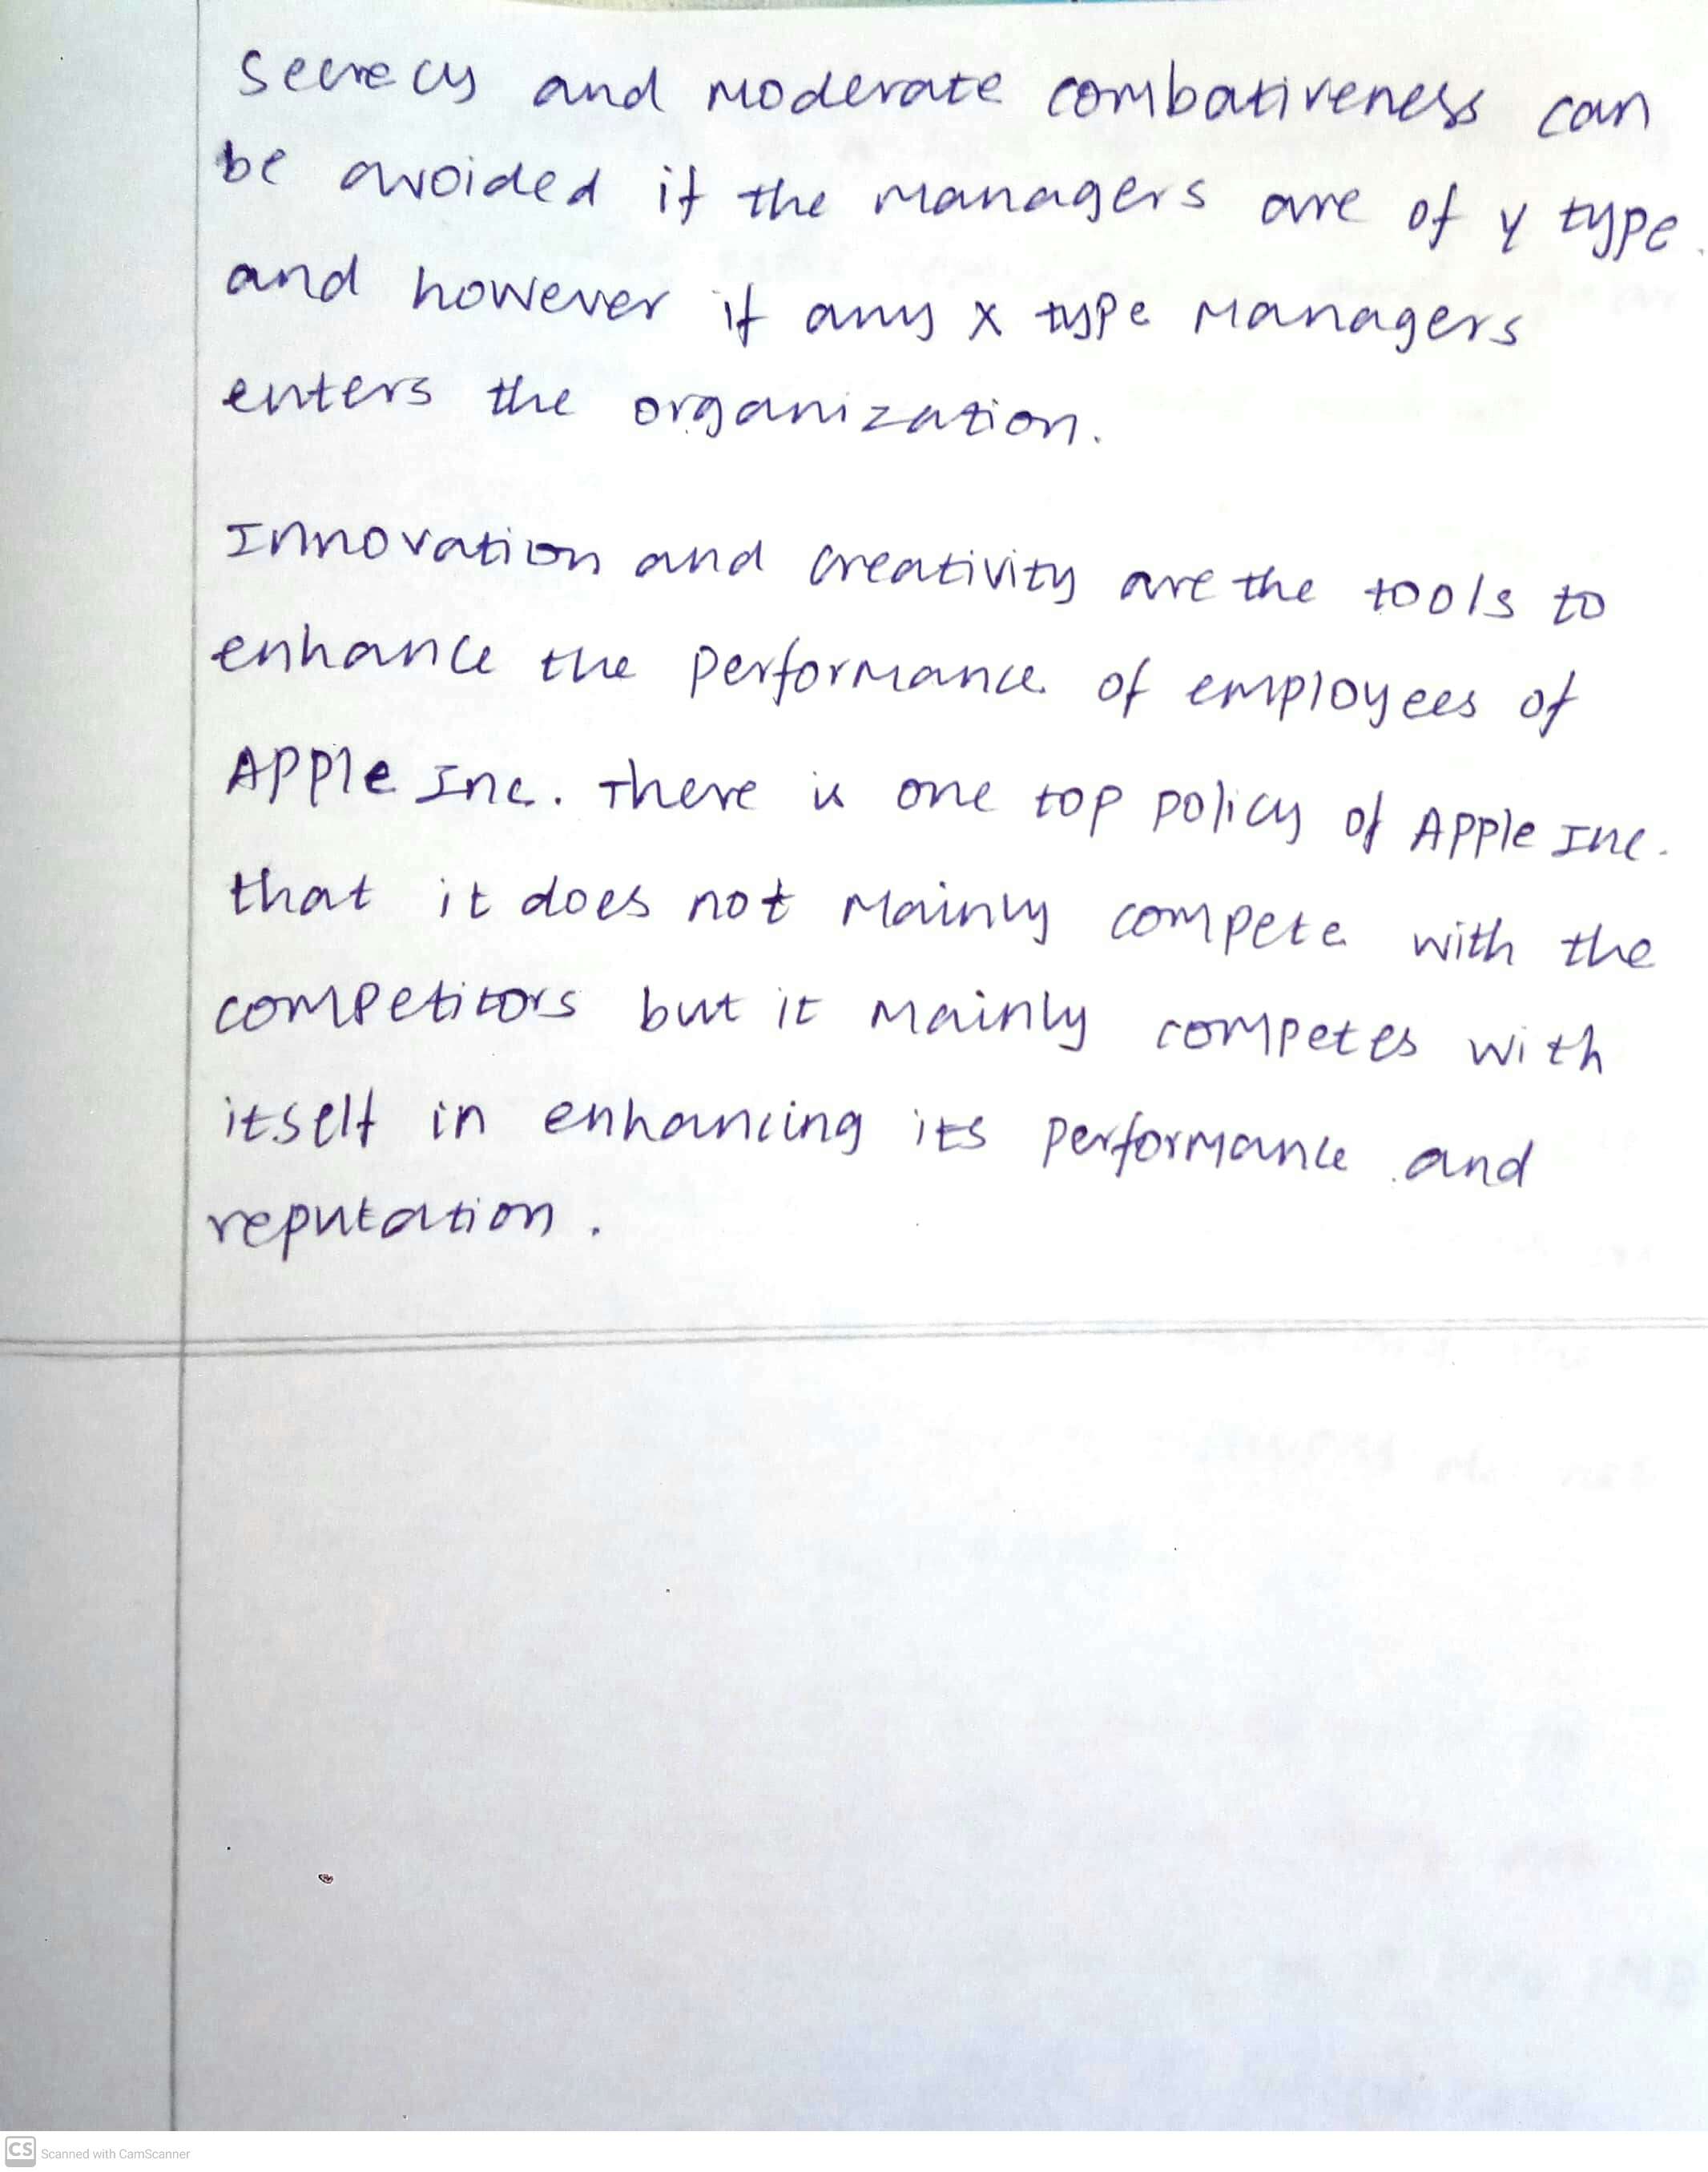 Secrecy and Moderate combativeness can
be avoided if the Managers are of y type.
and however if any x type Managers
enters the organization.
Innovation and creativity are the tools to
enhance the performance of employees of
Apple Inc. There is one top policy of Apple Inc.
that it does not Mainly compete with the
competitors but it Mainly competes with
itself in enhancing its performance and
reputation.
CS Scanned with CamScanner